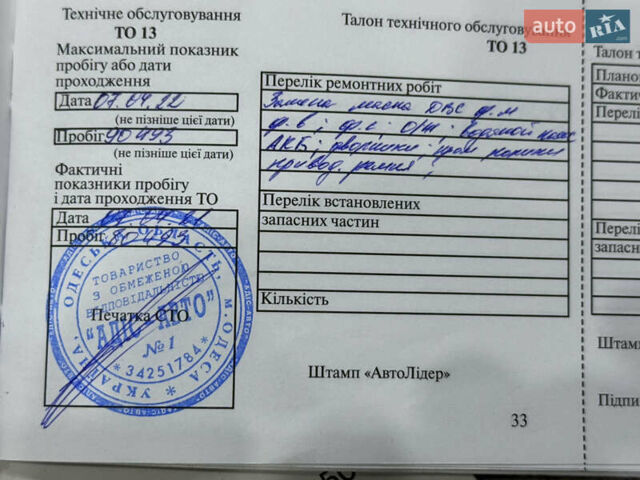 Технічне обслуговування
ТО 13
Максимальний показник
пробігу або дати
проходження
Дата 07.04.22
(не пізніше цієї дати)
Пробіг 90493
(не пізніше цієї дати)
Фактичні
показники пробігу
і дата проходження ТО
Дата
Пробіг 80493
Печатка СТО
УКРАЇНА, ОДЕСЬКА ОБЛАСТЬ, м. ОДЕСА
ТОВАРИСТВО
З ОБМЕЖЕНОЮ
ВІДПОВІДАЛЬНІСТЮ
"АДІС-АВТО"
№1
* 34251784 *
Талон технічного обслуговування
ТО 13
Перелік ремонтних робіт
Замена масла ДВС ф.м
ф.в; ф.с; О/Ж;
АКБ; дворники;
привод. ремня;
Перелік встановлених
запасних частин
Кількість
Штамп «АвтоЛідер»
33
Та
Плано
Фактич
Перелі
Перелі
запасн
Штамп
Підпи
auto RIA
.com